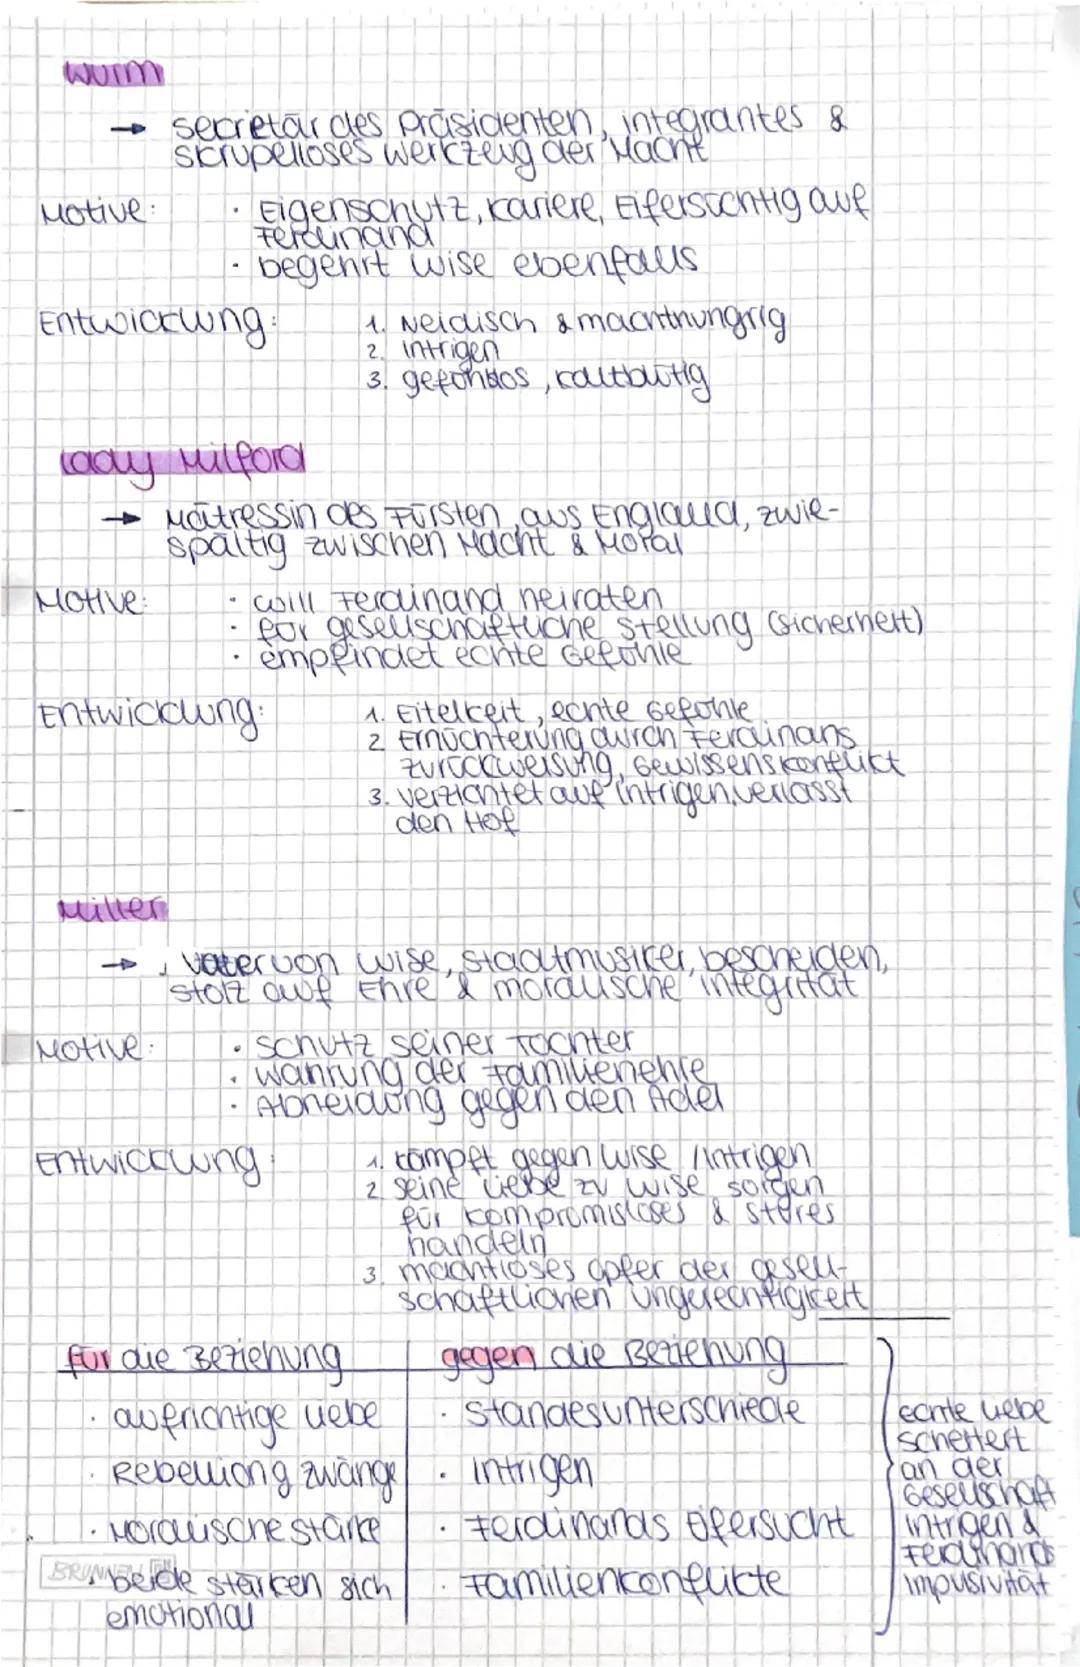 Wurm
→ Secretär des Präsidenten, integrantes &
skrupelloses Werkzeug der Macht
Motive: · Eigenschutz, Kariere, Eifersüchtig auf
Ferdinand
· begehrt Luise ebenfalls
Entwicklung: 1. Neidisch & machthungrig
2. Intrigen
3. gefühllos, kaltblütig
Lady Milford
→ Mätressin des Fürsten, aus England, zwie-
spältig zwischen Macht & Moral
Motive: · will Ferdinand heiraten
· für gesellschaftliche Stellung (Sicherheit)
· empfindet echte Gefühle
Entwicklung: 1. Eitelkeit, echte Gefühle
2 Ernüchterung durch Ferdinans
Zurückweisung, Gewissenskonflikt
3. verzichtet auf Intrigen, verlässt
den Hof
Miller
→ Vater von Luise, Stadtmusiker, bescheiden,
stolz auf Ehre & moralische Integrität
Motive: · Schutz seiner Tochter
· Wahrung der Familienehre
· Abneidung gegen den Adel
Entwicklung: 1. kämpft gegen Luise / Intrigen
2 seine Liebe zu Luise sorgen
für kompromissloses & stures
handeln
3. machtloses Opfer der gesell-
schaftlichen Ungerechtigkeit
für die Beziehung | gegen die Beziehung
· aufrichtige Liebe · Standesunterschiede
· Rebellion g Zwänge · Intrigen
· Moralische Stärke · Ferdinands Eifersucht
· beide stärken sich · Familienkonflikte
emotional
echte Liebe
scheitert
an der
Gesellschaft
Intrigen &
Ferdinands
Impusivität
BRUNNEN